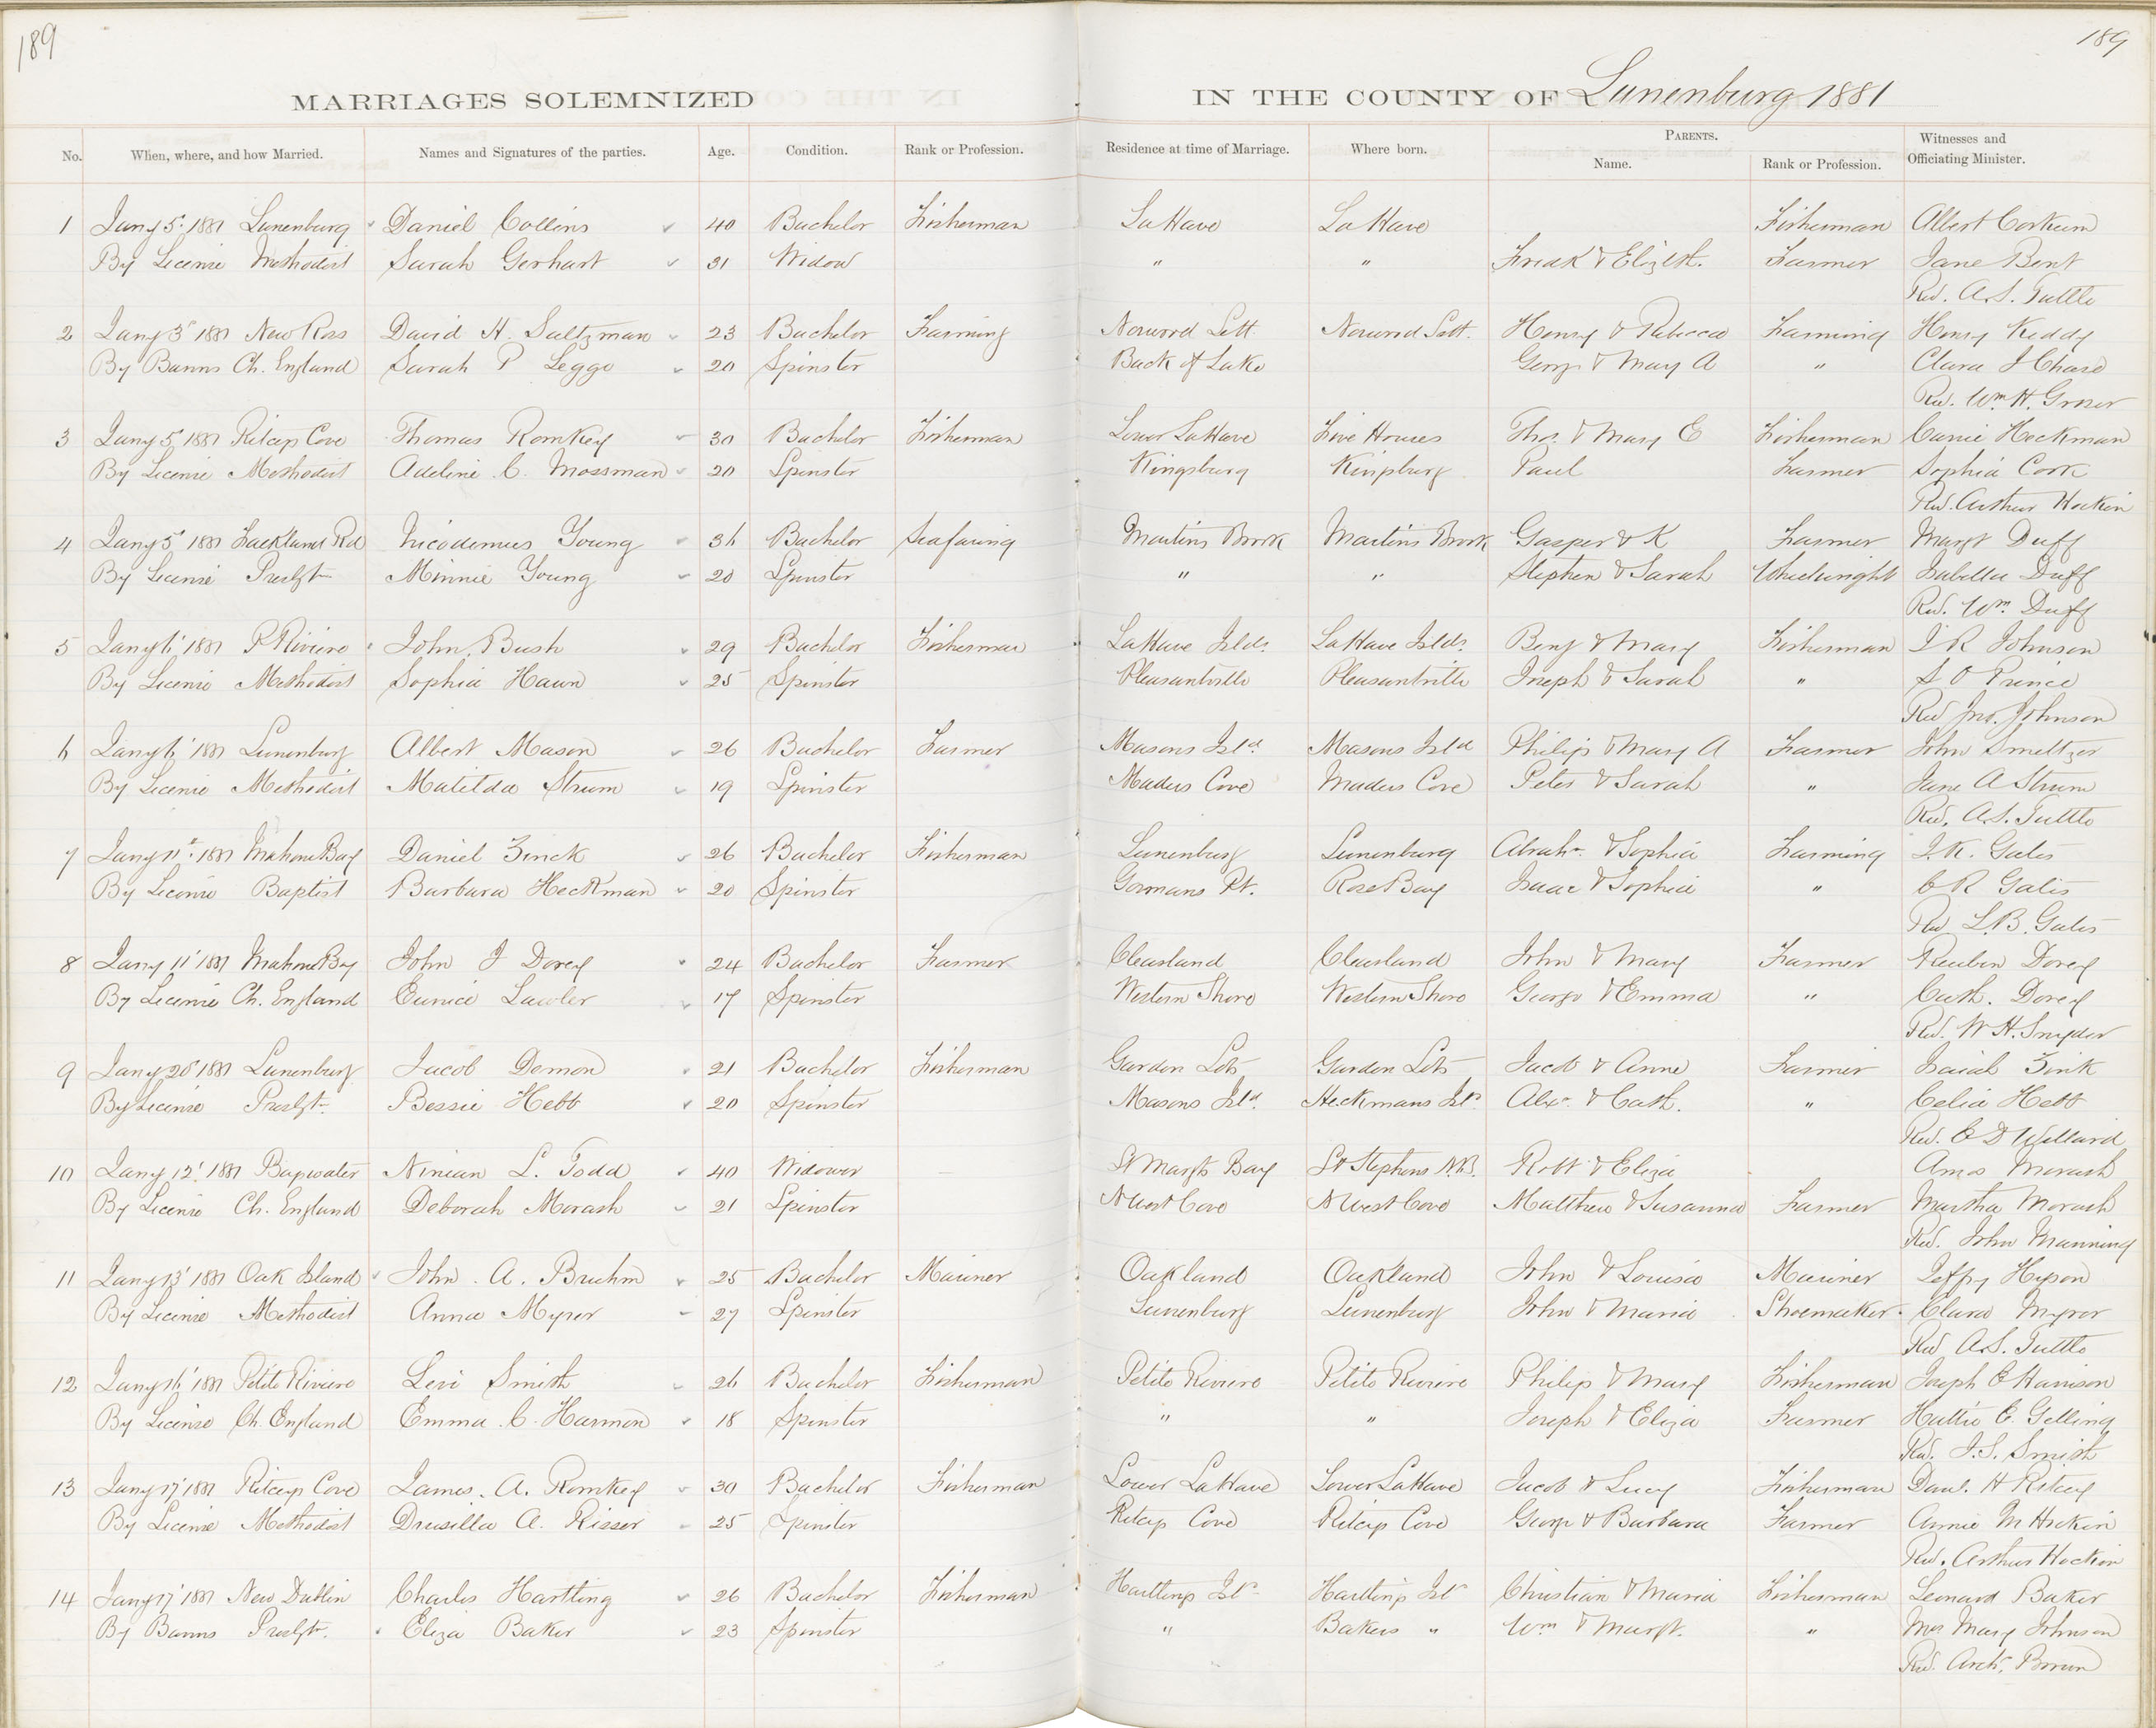 189
189
MARRIAGES SOLEMNIZED IN THE COUNTY OF Lunenburg 1881
No. When, where, and how Married. Names and Signatures of the parties. Age. Condition. Rank or Profession. Residence at time of Marriage. Where born. PARENTS. Name. Rank or Profession. Witnesses and Officiating Minister.
1 Jany 5 1881 Lunenburg Daniel Collins 40 Bachelor Fisherman LaHave LaHave Fisherman Albert Corkum
By License Methodist Sarah Gerhart 31 Widow " " Fredk & Elizth. Farmer Jane Bent
Rev. A.S. Tuttle
2 Jany 3 1881 New Ross David H. Saltzman 23 Bachelor Farming Norwood Sett. Norwood Sett. Henry & Rebecca Farming Henry Keddy
By Banns Ch. England Sarah P Leggo 20 Spinster Back of Lake George & Mary A " Clara J Chase
Rev. Wm. H. Groser
3 Jany 5 1881 Ritcey Cove Thomas Romkey 30 Bachelor Fisherman Lower LaHave Five Houses Thos. & Mary E Fisherman Carrie Heckman
By License Methodist Adeline C. Mossman 20 Spinster Kingsburg Kingsburg Paul Farmer Sophia Cook
Rev. Arthur Hockin
4 Jany 5 1881 Lacklands Rd Nicodemus Young 36 Bachelor Seafaring Martins Brook Martins Brook Gasper & K Farmer Margt Duff
By License Presbt Minnie Young 20 Spinster " " Stephen & Sarah Wheelwright Isabella Duff
Rev. Wm. Duff
5 Jany 6 1881 P Riviere John Bush 29 Bachelor Fisherman LaHave Islds. LaHave Islds. Benj & Mary Fisherman J R Johnson
By License Methodist Sophia Hawn 25 Spinster Pleasantville Pleasantville Joseph & Sarah " S O Prince
Rev Jno. Johnson
6 Jany 6 1881 Lunenburg Albert Mason 26 Bachelor Farmer Masons Isld Masons Isld Philip & Mary A Farmer John Smeltzer
By License Methodist Matilda Strum 19 Spinster Maders Cove Maders Cove Peter & Sarah " Jane A Strum
Rev. A.S. Tuttle
7 Jany 11 1881 Mahone Bay Daniel Zinck 26 Bachelor Fisherman Lunenburg Lunenburg Abrahm. & Sophia Farming J.K. Gates
By License Baptist Barbara Heckman 20 Spinster Gormans Pt. Rose Bay Isaac & Sophia " C R Gates
Rev L.B. Gates
8 Jany 11 1881 Mahone Bay John J Dorey 24 Bachelor Farmer Clearland Clearland John & Mary Farmer Reuben Dorey
By License Ch. England Eunice Lawler 17 Spinster Western Shore Western Shore George & Emma " Cath. Dorey
Rev. W H. Snyder
9 Jany 20 1881 Lunenburg Jacob Demon 21 Bachelor Fisherman Garden Lots Garden Lots Jacob & Anne Farmer Isaiah Zink
By License Presbt. Bessie Hebb 20 Spinster Masons Isld. Heckmans Isld Alexr. & Cath. " Celia Hebb
Rev. E D Millard
10 Jany 12 1881 Bayswater Ninian L. Todd 40 Widower St Margts Bay St Stephens N.B. Robt & Eliza Amos Morash
By License Ch. England Deborah Morash 21 Spinster N West Cove N West Cove Matthew & Susanna Farmer Martha Morash
Rev. John Manning
11 Jany 13 1881 Oak Island John. A. Bruhm 25 Bachelor Mariner Oakland Oakland John & Louisa Mariner Jeffry Hyson
By License Methodist Anna Myrer 27 Spinster Lunenburg Lunenburg John & Maria Shoemaker Clara Myrer
Rev A.S. Tuttle
12 Jany 16 1881 Petite Riviere Levi Smith 26 Bachelor Fisherman Petite Riviere Petite Riviere Philip & Mary Fisherman Joseph E Harrison
By License Ch. England Emma C. Harmon 18 Spinster " " Joseph & Eliza Farmer Hattie E. Gelling
Rev. J.S. Smith
13 Jany 17 1881 Ritcey Cove James. A. Romkey 30 Bachelor Fisherman Lower LaHave Lower LaHave Jacob & Lucy Fisherman Danl. H Ritcey
By License Methodist Drusilla A. Risser 25 Spinster Ritcey Cove Ritcey Cove George & Barbara Farmer Annie M Hockin
Rev. Arthur Hockin
14 Jany 17 1881 New Dublin Charles Hartling 26 Bachelor Fisherman Hartlings Isld Hartlings Isld Christian & Maria Fisherman Leonard Baker
By Banns Presbt. Eliza Baker 23 Spinster " Bakers " Wm & Margt. " Mrs Mary Johnson
Rev. Archd. Brown